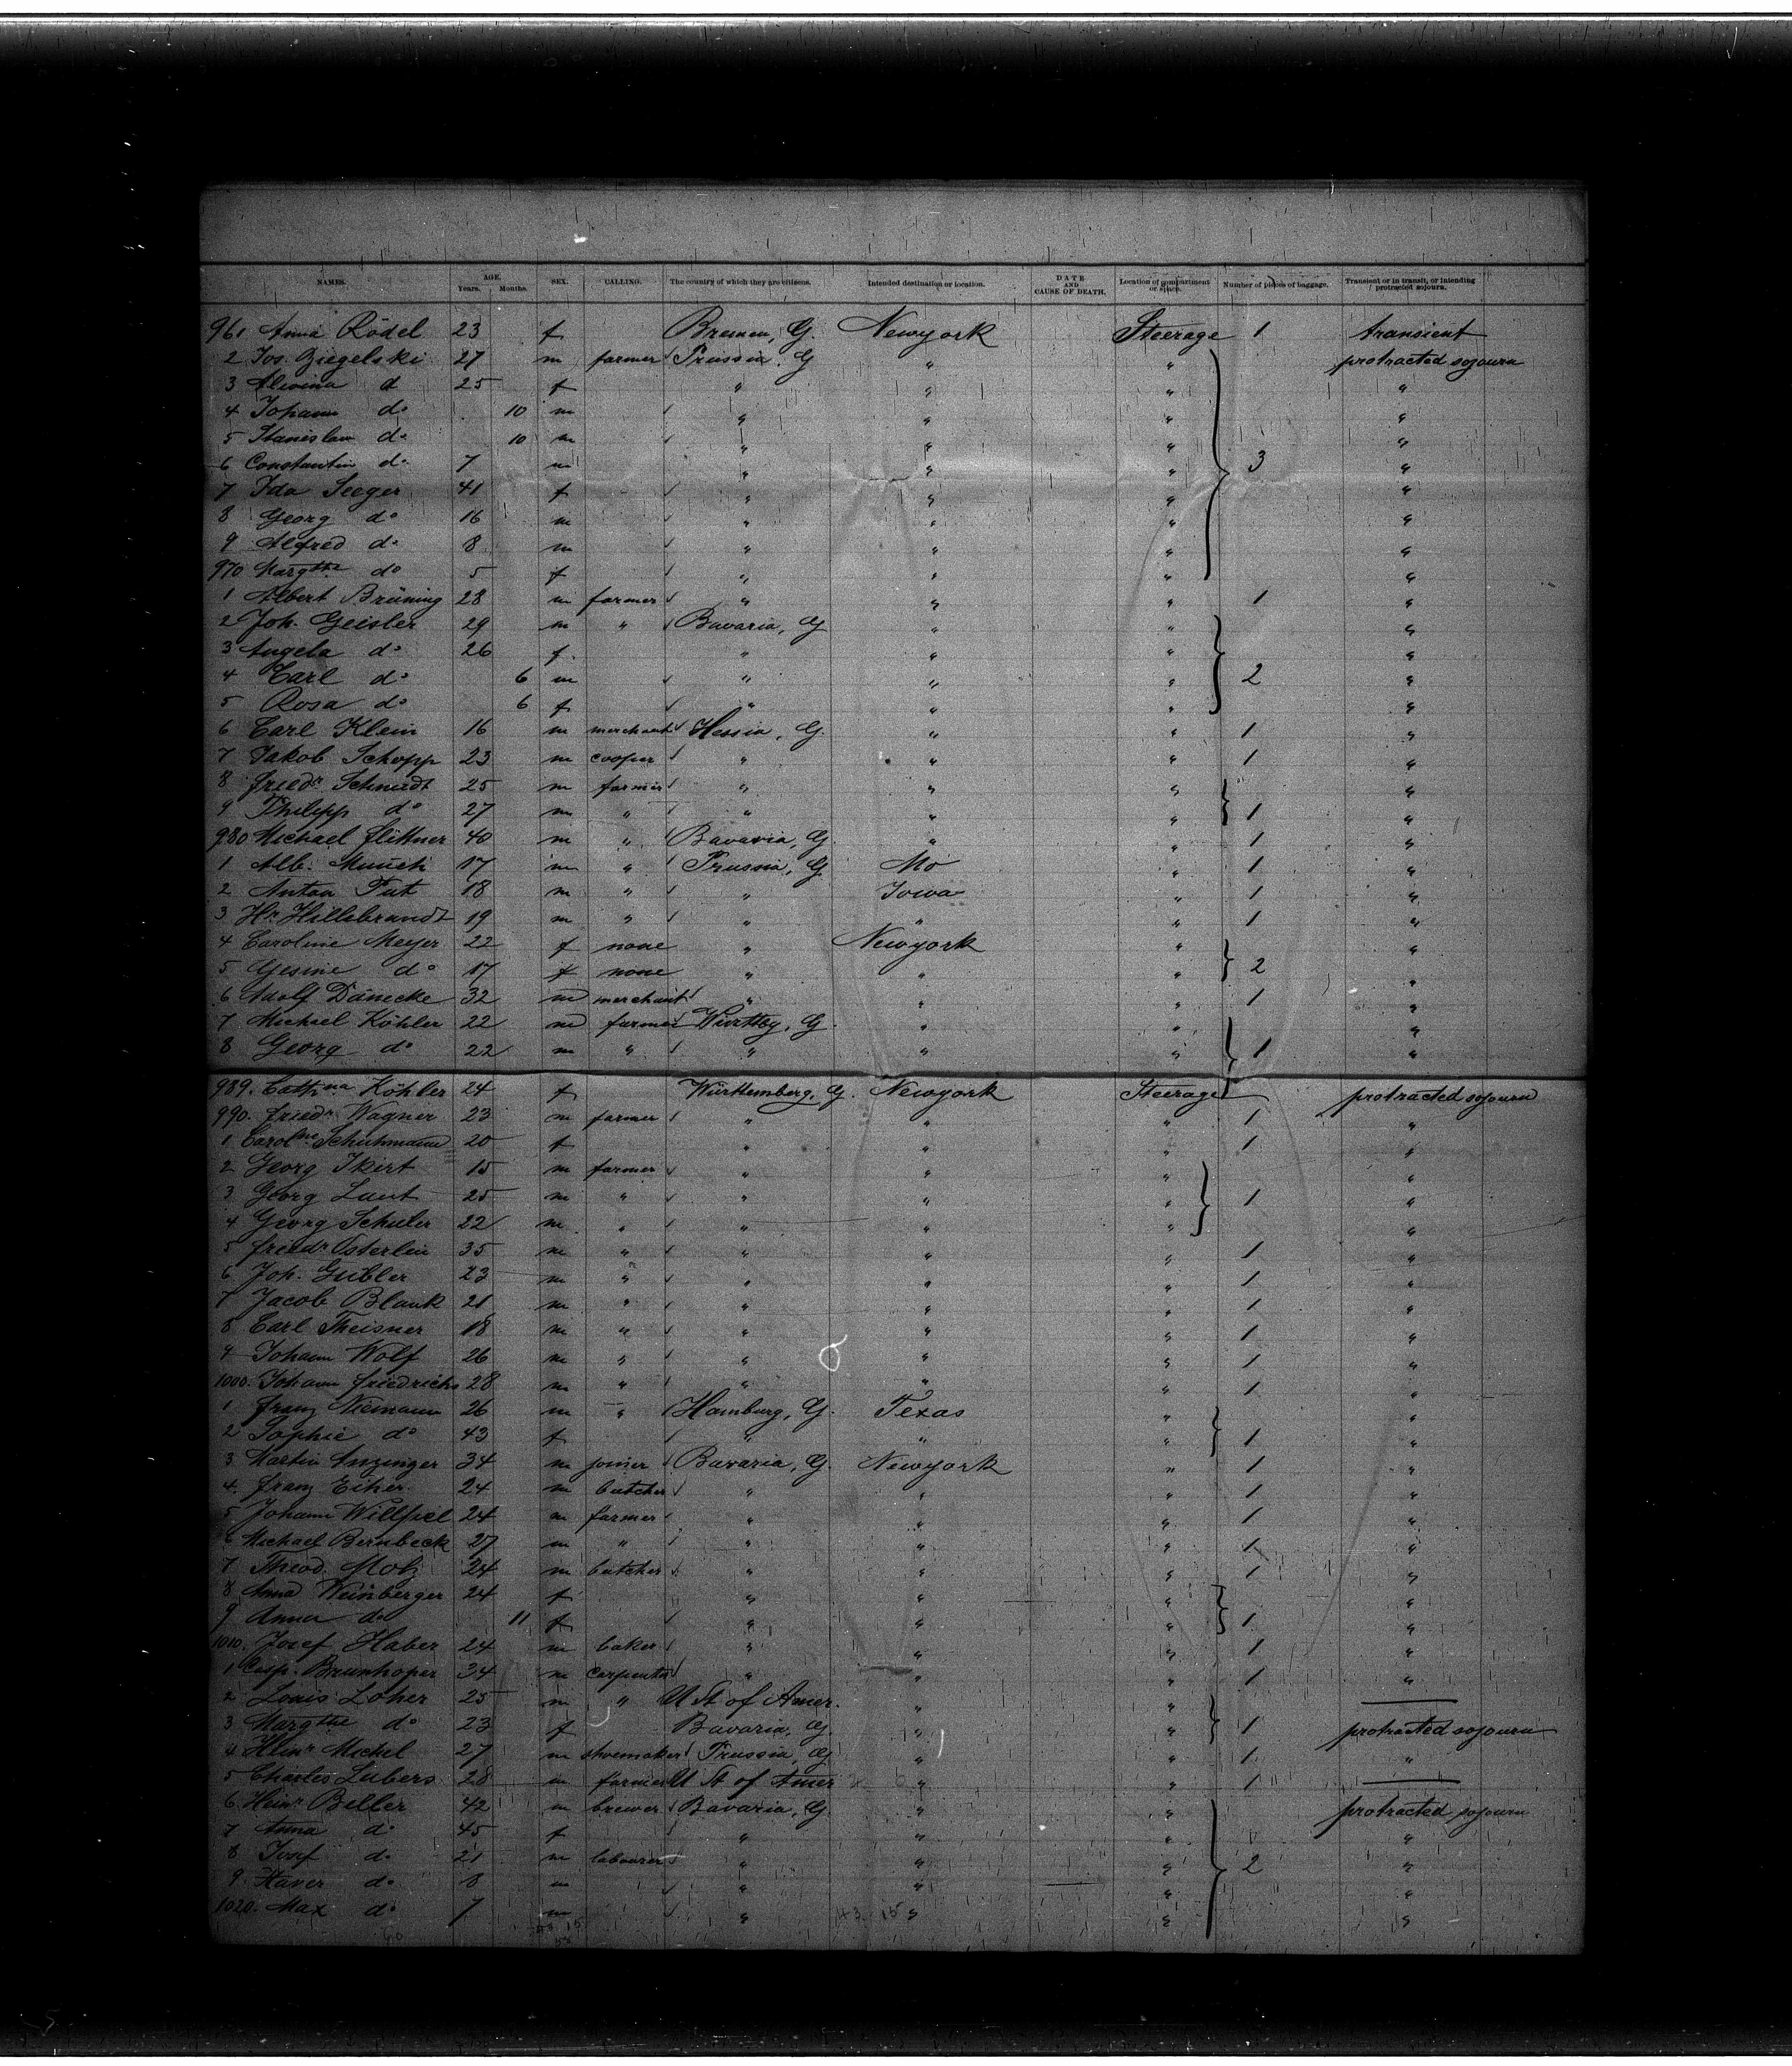 NAMES. AGE. Years. Months. SEX. CALLING. The country of which they are citizens. Intended destination or location. DATE AND CAUSE OF DEATH. Location of compartment or space. Number of pieces of baggage. Transient or in transit, or intending protracted sojourn.
961 Anna Rödel 23 f Bremen, G. Newyork Steerage 1 transient
2 Jos. Ziegelski 27 m farmer Prussia. G " " protracted sojourn
3 Alwina d 25 f " " " "
4 Johann do 10 m " " " "
5 Stanislaw do 10 m " " " "
6 Constantin do 7 m " " " 3 "
7 Ida Seeger 41 f " " " "
8 Georg do 16 m " " " "
9 Alfred do 8 m " " " "
970 Margthe do 5 f " " " "
1 Albert Brüning 28 m farmer " " " 1 "
2 Joh. Geisler 29 m " Bavaria, G " " "
3 Angela do 26 f. " " " "
4 Carl do 6 m " " " 2 "
5 Rosa do 6 f " " " "
6 Carl Klein 16 m merchant Hessia, G. " " 1 "
7 Jakob Schopp 23 m cooper " " " 1 "
8 Friedr Schmidt 25 m farmer " " " "
9 Philipp do 27 m " " " " 1 "
980 Michael Flittner 40 m " Bavaria, G. " " 1 "
1 Alb. Münch 17 m " Prussia, G Mo " 1 "
2 Anton Put 18 m " " Iowa " 1 "
3 Hr. Hillebrandt 19 m " " " " 1 "
4 Caroline Meyer 22 f none " Newyork " "
5 Gesine do 17 f none " " " 2 "
6 Adolf Dänecke 32 m merchant " " " 1 "
7 Michael Köhler 22 m farmer Württbg, G. " " "
8 Georg do 22 m " " " " 1 "
989. Cathna Köhler 24 f Württemberg, G. Newyork Steerage protracted sojourn
990. Friedr Wagner 23 m farmer " " " 1 "
1 Carolne Schuhmann 20 f " " " 1 "
2 Georg Ikirt 15 m farmer " " " "
3 Georg Laut 25 m " " " " 1 "
4 Georg Schuler 22 m " " " " "
5 Friedr Osterlin 35 m " " " " 1 "
6 Joh. Gubler 23 m " " " " 1 "
7 Jacob Blank 21 m " " " " 1 "
8 Carl Theisner 18 m " " " " 1 "
9 Johann Wolf 26 m " " " " 1 "
1000. Johann Friedrichs 28 m " " " " 1 "
1 Franz Niemann 26 m " Hamburg, G. Texas " "
2 Sophie do 43 f " " " 1 "
3. Martin Anzinger 34 m joiner Bavaria, G. Newyork " 1 "
4. Franz Eiher. 24 m butcher " " " 1 "
5 Johann Willfiel 24 m farmer " " " 1 "
6 Michael Bernbeck 27 m " " " " 1 "
7 Theod. Motz 24 m butcher " " " 1 "
8 Anna Weinberger 24 f " " " "
9 Anna do 11 f " " " 1 "
1010. Josef Haber 24 m baker " " " 1 "
1 Casp. Brunhoper 34 m carpenter " " " 1 "
2 Louis Loher 25 m " U St of Amer. " "
3 Margthe do 23 f Bavaria, G. " " 1 protracted sojourn
4 Heinr Michel 27 m shoemaker Prussia, G " " 1 "
5 Charles Lubers 28 m farmer U St of Amer " " 1
6. Heinr Beller 42 m brewer Bavaria, G. " " protracted sojourn
7 Anna do 45 f " " " "
8 Josef do 21 m labourer " " " 2 "
9. Xaver do 8 m " " " "
1020. Max do 7 m " " " "